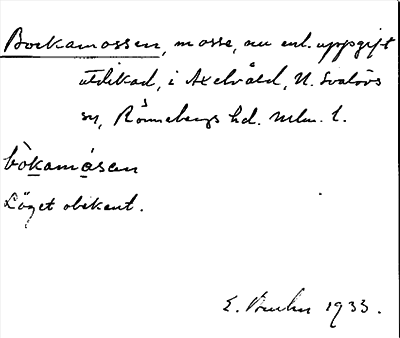 Bockamossen, mosse, nu enl. uppgift
utdikad, i Axelvåld, N. Svalövs
sn, Rönnebergs hd. Mlm. l.
bòkamåsen
Läget obekant.
E. 1933.